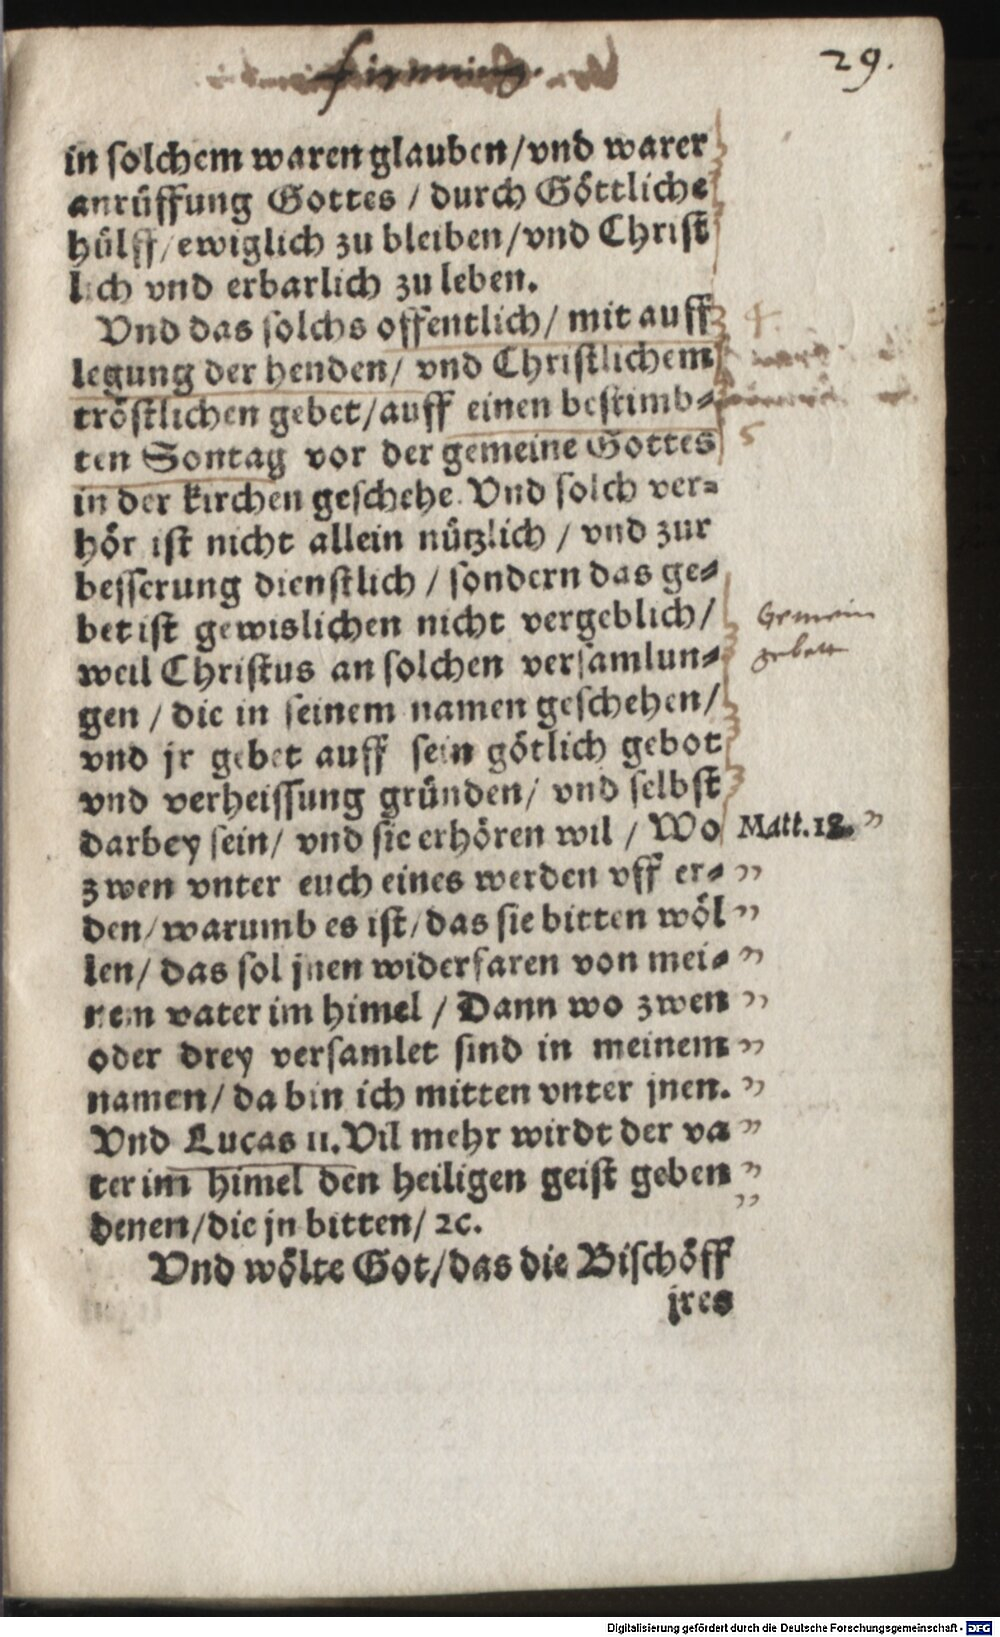 firmung.
29.
in solchem waren glauben/vnd warer
anrüffung Gottes / durch Göttliche
hülff/ewiglich zu bleiben/vnd Christ
lich vnd erbarlich zu leben.
Vnd das solchs offentlich/ mit auff
legung der henden/ vnd Christlichem
4.
tröstlichen gebet/auff einen bestimb-
ten Sontag vor der gemeine Gottes
5
in der kirchen geschehe. Vnd solch ver-
hör ist nicht allein nützlich / vnd zur
besserung dienstlich / sondern das ge-
bet ist gewislichen nicht vergeblich/
Gemein
gebett
weil Christus an solchen versamlun-
gen / die in seinem namen geschehen/
vnd jr gebet auff sein götlich gebot
vnd verheissung gründen/ vnd selbst
darbey sein/ vnd sie erhören wil / Wo
Matt.18. "
zwen vnter euch eines werden vff er- "
den/warumb es ist/das sie bitten wöl "
len/ das sol jnen widerfaren von mei- "
nem vater im himel / Dann wo zwen "
oder drey versamlet sind in meinem "
namen/ da bin ich mitten vnter jnen. "
Vnd Lucas 11. Vil mehr wirdt der va "
ter im himel den heiligen geist geben "
denen/die jn bitten/ 2c. "
Vnd wölte Got/das die Bischöff
jres
Digitalisierung gefördert durch die Deutsche Forschungsgemeinschaft - DFG